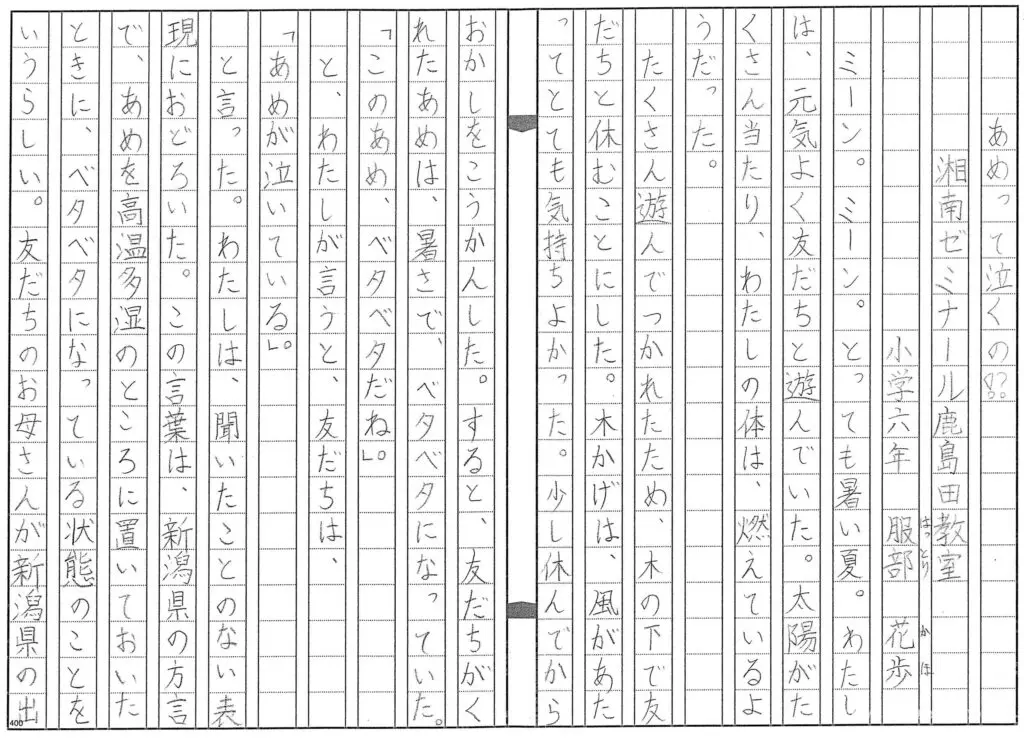 あめって泣くの!?
湘南ゼミナール鹿島田教室
小学六年　服部　花歩
はっとり　かほ
ミーン。ミーン。とっても暑い夏。わたし
は、元気よく友だちと遊んでいた。太陽がた
くさん当たり、わたしの体は、燃えているよ
うだった。
たくさん遊んでつかれたため、木の下で友
だちと休むことにした。木かげは、風があた
ってとても気持ちよかった。少し休んでから
おかしをこうかんした。すると、友だちがく
れたあめは、暑さで、ベタベタになっていた。
「このあめ、ベタベタだね」。
と、わたしが言うと、友だちは、
「あめが泣いている」。
と言った。わたしは、聞いたことのない表
現におどろいた。この言葉は、新潟県の方言
で、あめを高温多湿のところに置いておいた
ときに、ベタベタになっている状態のことを
いうらしい。友だちのお母さんが新潟県の出
400